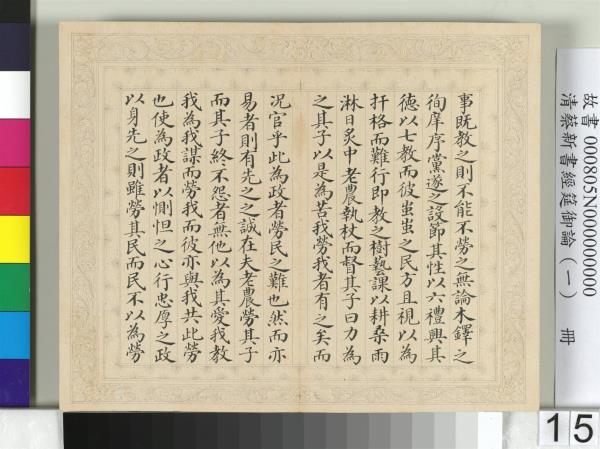 事既教之則不能不勞之無論木鐸之
徇庠序黨遂之設節其性以六禮興其
德以七教而彼蚩蚩之民方且視以為
扞格而難行即教之樹藝課以耕桑雨
淋日炙中老農執杖而督其子曰力為
之其子以是為苦我勞我者有之矣而
况官乎此為政者勞民之難也然而亦
易者則有先之之誠在夫老農勞其子
而其子終不怨者無他以為其愛我教
我為我謀而勞我而彼亦與我共此勞
也使為政者以惻怛之心行忠厚之政
以身先之則雖勞其民而民不以為勞
故書 000805N000000000
清蔡新書經筵御論(一) 冊
15